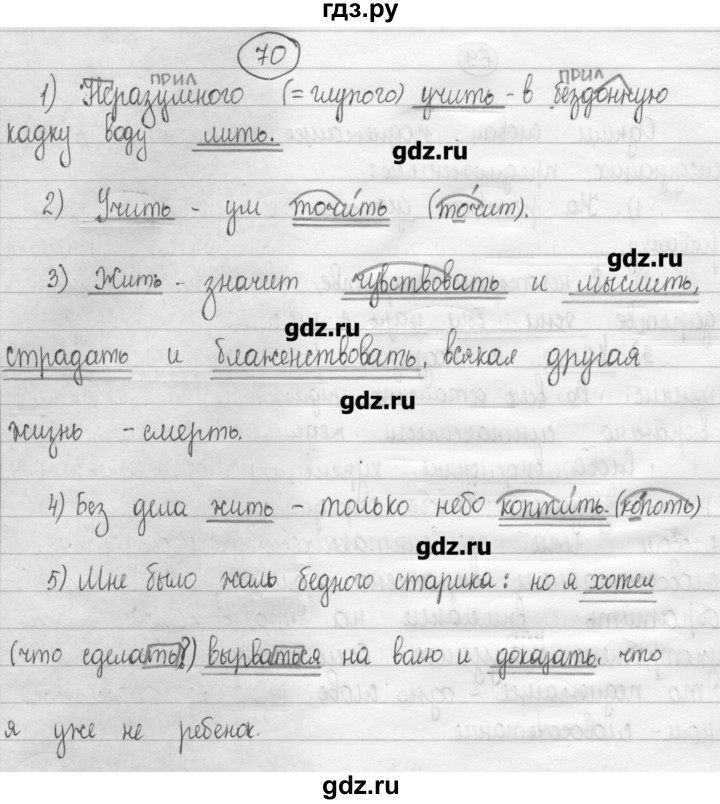 гдз.ру
70
прил прил
1) Неразумного (=глупого) учить - в бездонную
кадку воду лить.
gdz.ru
2) Учить - ум точи́ть (то́чит).
gdz.ru
3) Жить - значит чувствовать и мыслить,
gdz.ru
страдать и блаженствовать, всякая другая
gdz.ru
жизнь - смерть.
4) Без дела жить - только небо коптить. (копоть)
gdz.ru
5) Мне было жаль бедного старика: но я хотел
(что сделать?) вырваться на волю и доказать, что
gdz.ru
я уже не ребенок.
gdz.ru